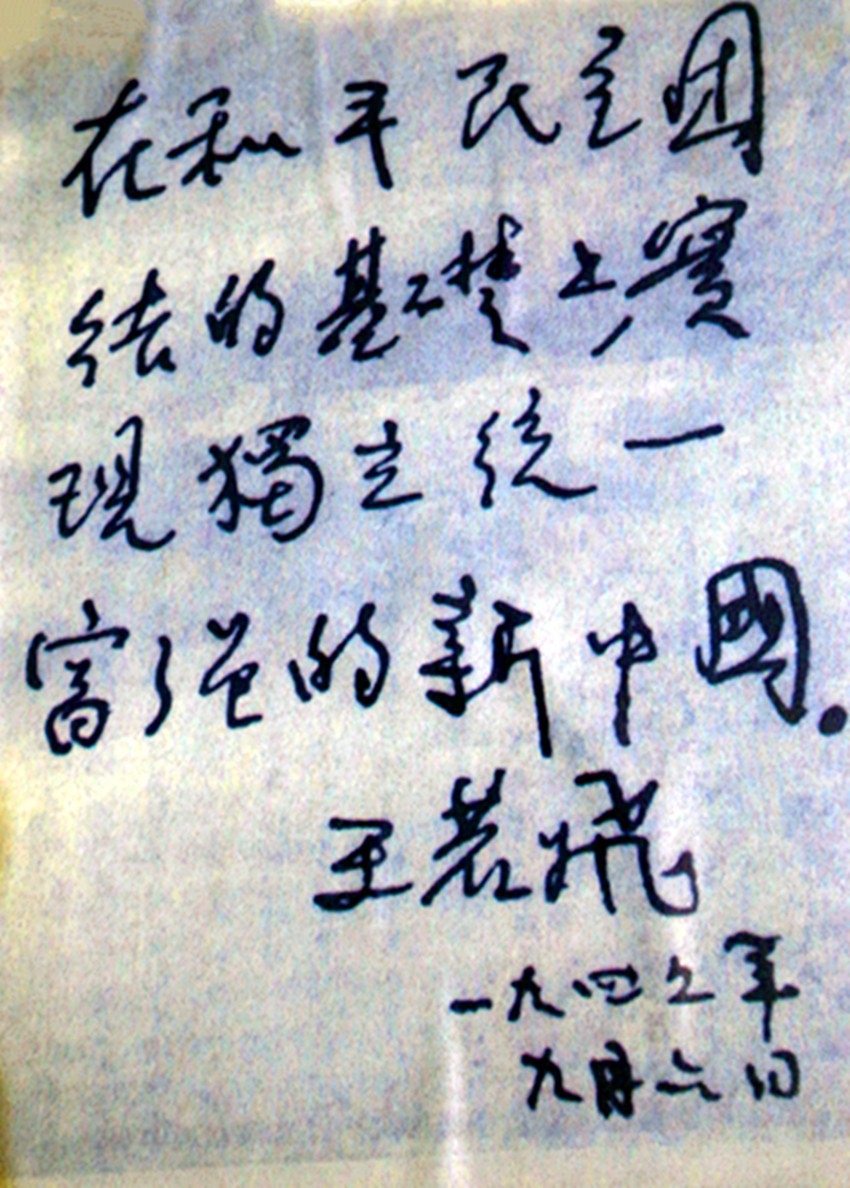 在和平民主团
结的基礎上實
現獨立統一
富强的新中國.
王若飛
一九四五年
九月六日